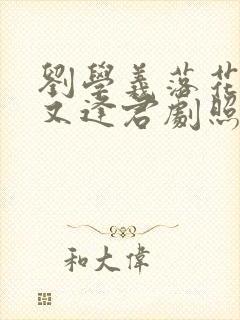 劉學義落花
又逢君劇照
和大偉